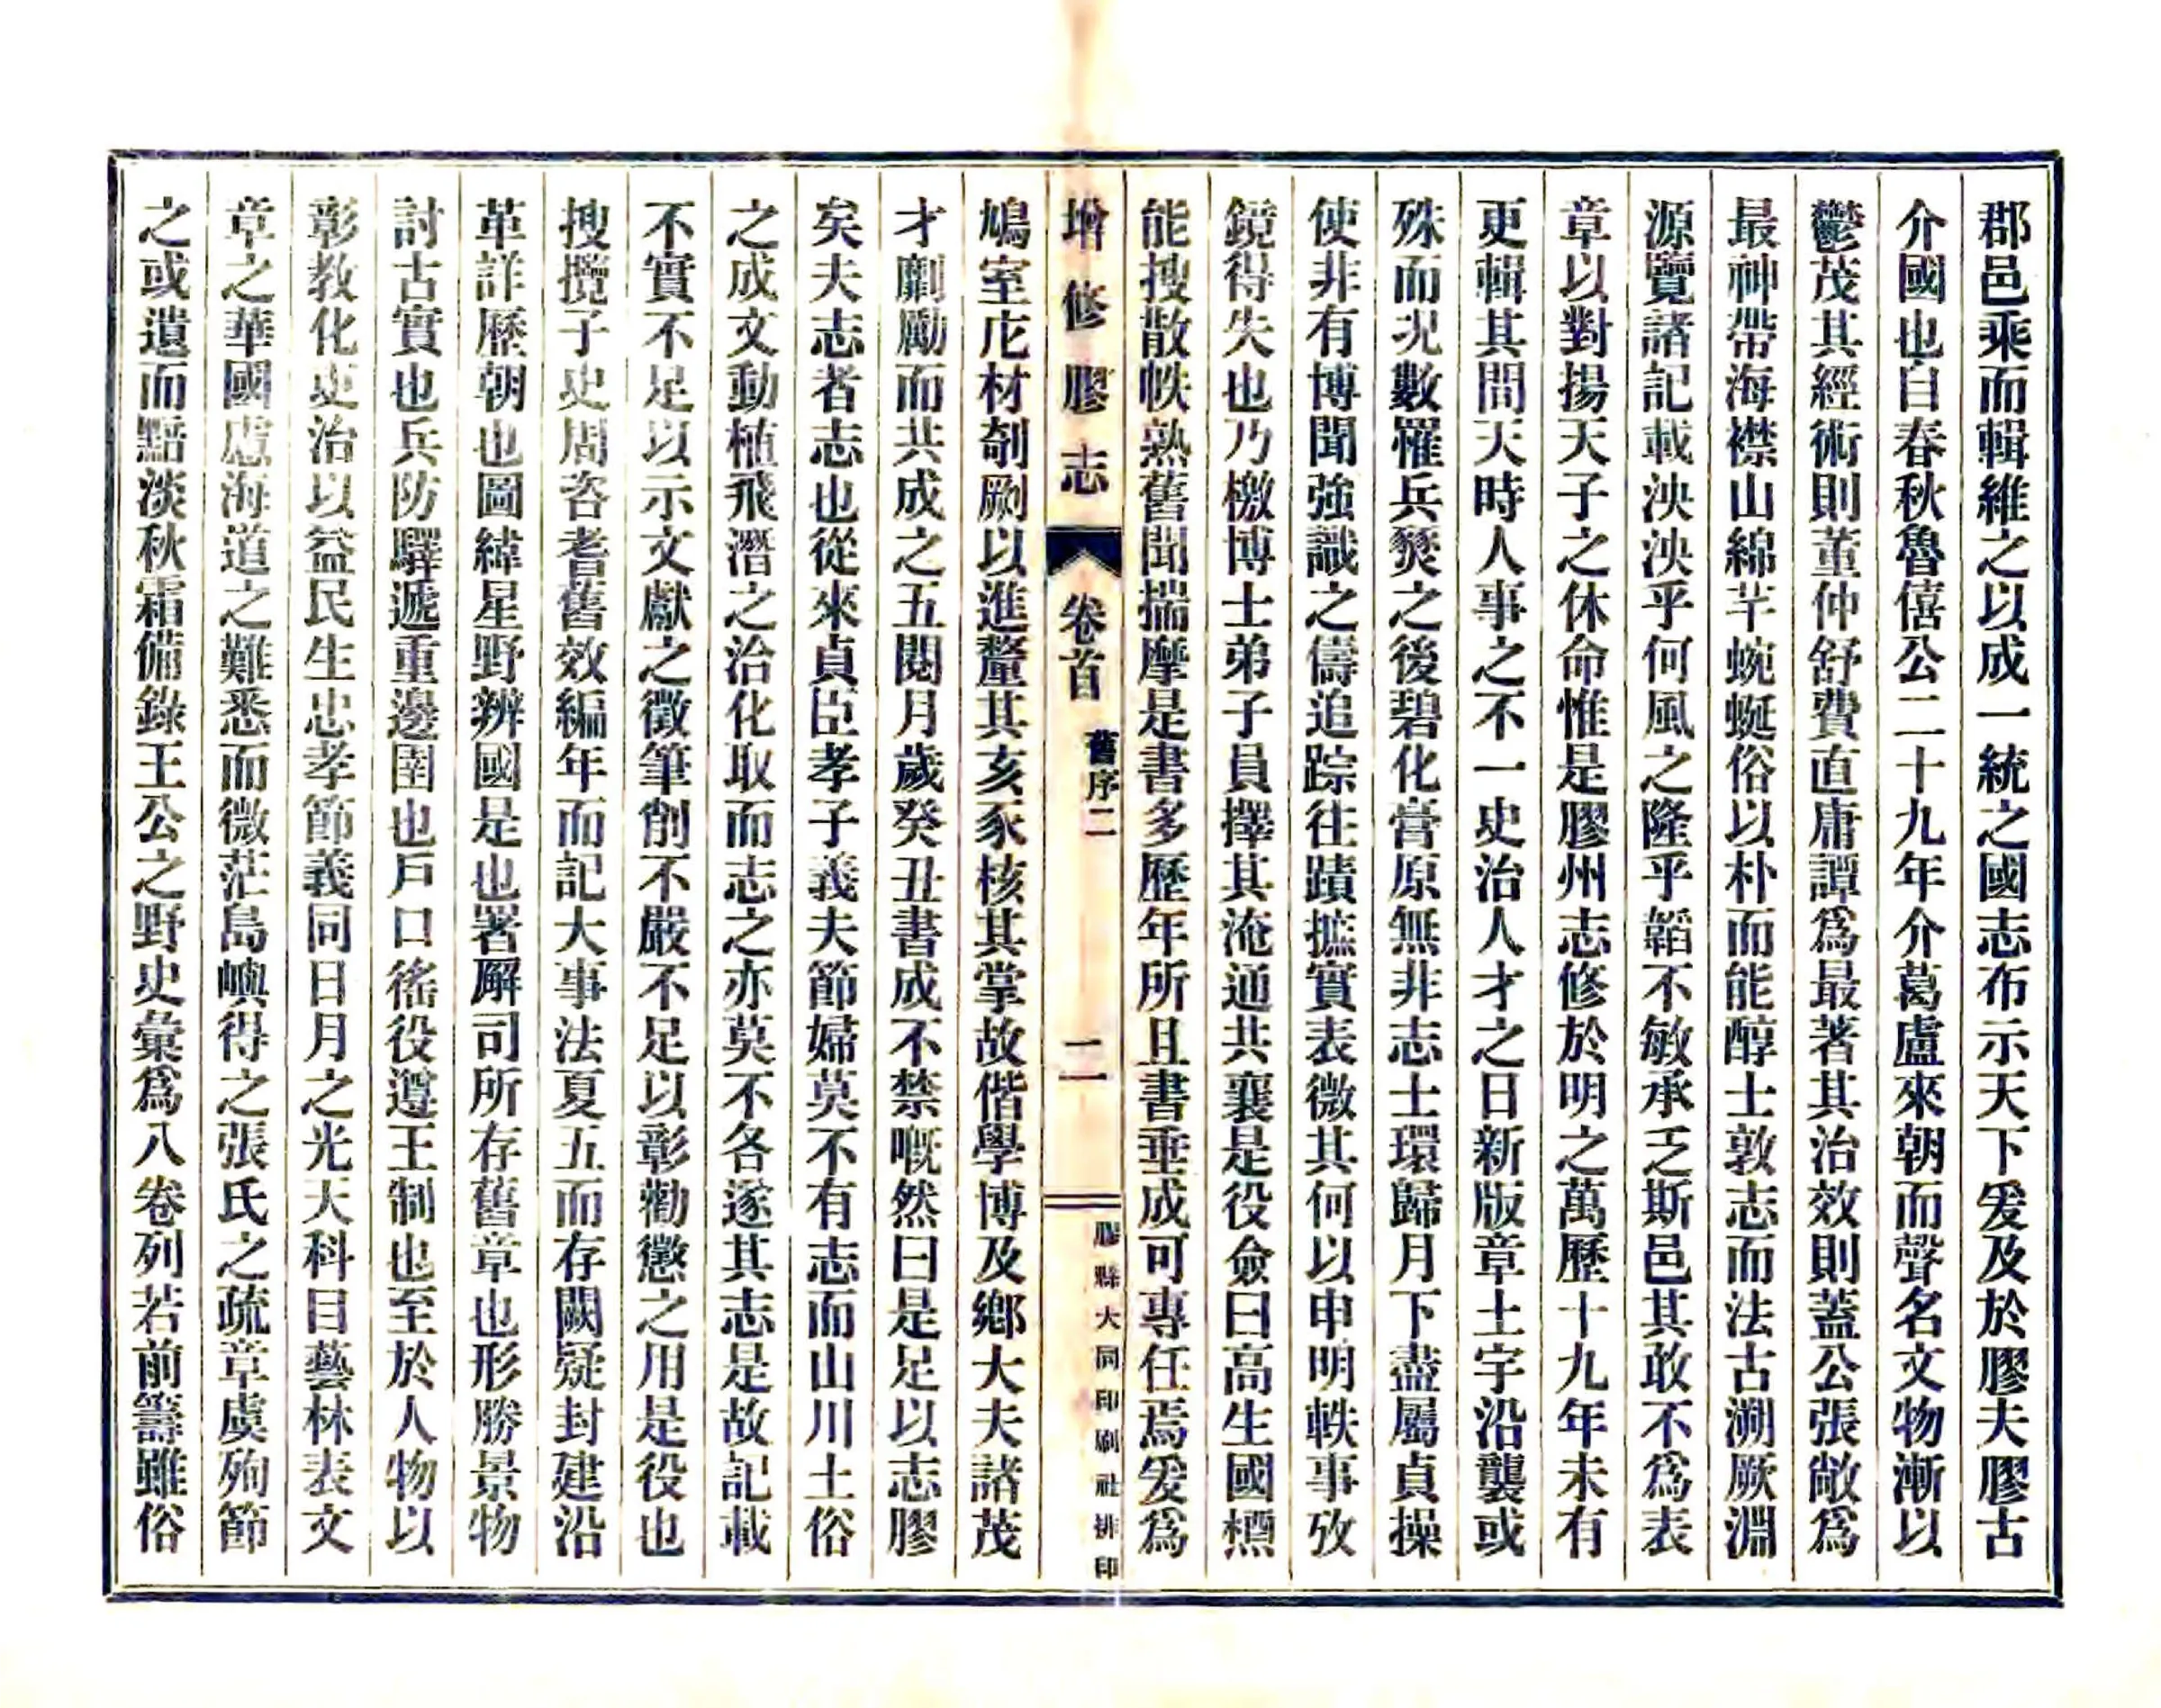 郡邑乘而輯維之以成一統之國志布示天下爰及於膠夫膠古
介國也自春秋魯僖公二十九年介葛盧來朝而聲名文物漸以
鬱茂其經術則董仲舒費直庸譚爲最著其治效則蓋公張敞爲
最神帶海襟山綿芊蜿蜒俗以朴而能醇士敦志而法古溯厥淵
源覽諸記載泱泱乎何風之隆乎韜不敏承乏斯邑其敢不爲表
章以對揚天子之休命惟是膠州志修於明之萬歷十九年未有
更輯其間天時人事之不一史治人才之日新版章土宇沿襲或
殊而況數罹兵燹之後碧化膏原無非志士環歸月下盡屬貞操
使非有博聞強識之儔追踪往蹟摭實表微其何以申明軼事攷
鏡得失也乃檄博士弟子員擇其淹通共襄是役僉曰高生國楩
能搜散帙熟舊聞揣摩是書多歷年所且書垂成可專任焉爰爲
增修膠志
卷首
舊序二
二
膠縣大同印刷社排印
鳩室庀材剞劂以進釐其亥豕核其掌故偕學博及鄉大夫諸茂
才劘勵而共成之五閱月歲癸丑書成不禁嘅然曰是足以志膠
矣夫志者志也從來貞臣孝子義夫節婦莫不有志而山川土俗
之成文動植飛潛之治化取而志之亦莫不各遂其志是故記載
不實不足以示文獻之徵筆削不嚴不足以彰勸懲之用是役也
搜攬子史周咨耆舊效編年而記大事法夏五而存闕疑封建沿
革詳歷朝也圖緯星野辨國是也署廨司所存舊章也形勝景物
討古實也兵防驛遞重邊圉也戶口徭役遵王制也至於人物以
彰教化吏治以益民生忠孝節義同日月之光天科目藝林表文
章之華國慮海道之難悉而微茫島嶼得之張氏之疏章虞殉節
之或遺而黯淡秋霜備錄王公之野史彙爲八卷列若前籌雖俗